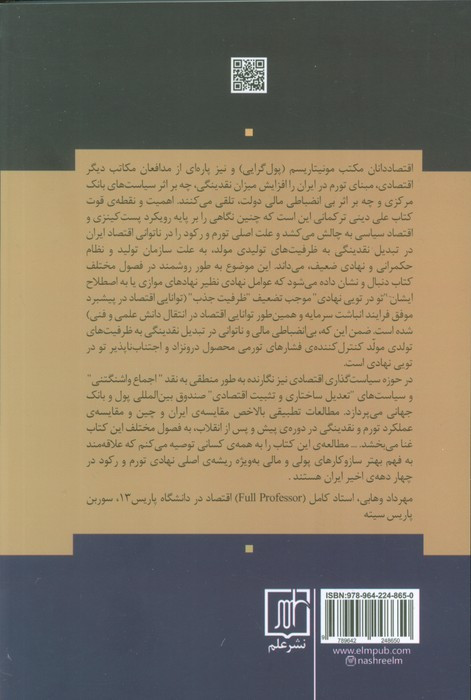 اقتصاددانان مکتب مونیتاریسم (پول‌گرایی) و نیز پاره‌ای از مدافعان مکاتب دیگر
اقتصادی، مبنای تورم در ایران را افزایش میزان نقدینگی، چه بر اثر سیاست‌های بانک
مرکزی و چه بر اثر بی انضباطی مالی دولت، تلقی می‌کنند. اهمیت و نقطه‌ی قوت
کتاب علی دینی ترکمانی این است که چنین نگاهی را بر پایه رویکرد پست‌کینزی و
اقتصاد سیاسی به چالش می‌کشد و علت اصلی تورم و رکود را در ناتوانی اقتصاد ایران
در تبدیل نقدینگی به ظرفیت‌های تولیدی مولد، به علت سازمان تولید و نظام
حکمرانی و نهادی ضعیف، می‌داند. این موضوع به طور روشمند در فصول مختلف
کتاب دنبال و نشان داده می‌شود که عوامل نهادی نظیر نهادهای موازی یا به اصطلاح
ایشان"تو در تویی نهادی"موجب تضعیف "ظرفیت جذب" (توانایی اقتصاد در پیشبرد
موفق فرآیند انباشت سرمایه و همین‌طور توانایی اقتصاد در انتقال دانش علمی و فنی)
شده است. ضمن این که، بی‌انضباطی مالی و ناتوانی در تبدیل نقدینگی به ظرفیت‌های
تولدی مولّد کنترل‌کننده‌ی فشارهای تورمی محصول درونزاد و اجتناب‌ناپذیر تو در
تویی نهادی است.
در حوزه سیاست‌گذاری اقتصادی نیز نگارنده به طور منطقی به نقد "اجماع واشنگتنی"
و سیاست‌های "تعدیل ساختاری و تثبیت اقتصادی" صندوق بین‌المللی پول و بانک
جهانی می‌پردازد. مطالعات تطبیقی بالاخص مقایسه‌ی ایران و چین و مقایسه‌ی
عملکرد تورم و نقدینگی در دوره‌ی پیش و پس از انقلاب، به فصول مختلف این کتاب
غنا می‌بخشد. ... مطالعه‌ی این کتاب را به همه‌ی کسانی توصیه می‌کنم که علاقه‌مند
به فهم بهتر سازوکارهای پولی و مالی به‌ویژه ریشه‌ی اصلی نهادی تورم و رکود در
چهار دهه‌ی اخیر ایران هستند .
مهرداد وهابی، استاد کامل (Full Professor) اقتصاد در دانشگاه پاریس ۱۳، سوربن
پاریس سیته
نشر علم
ISBN: 978-964-224-865-0
9 789642 248650
www.elmpub.com
nashreelm